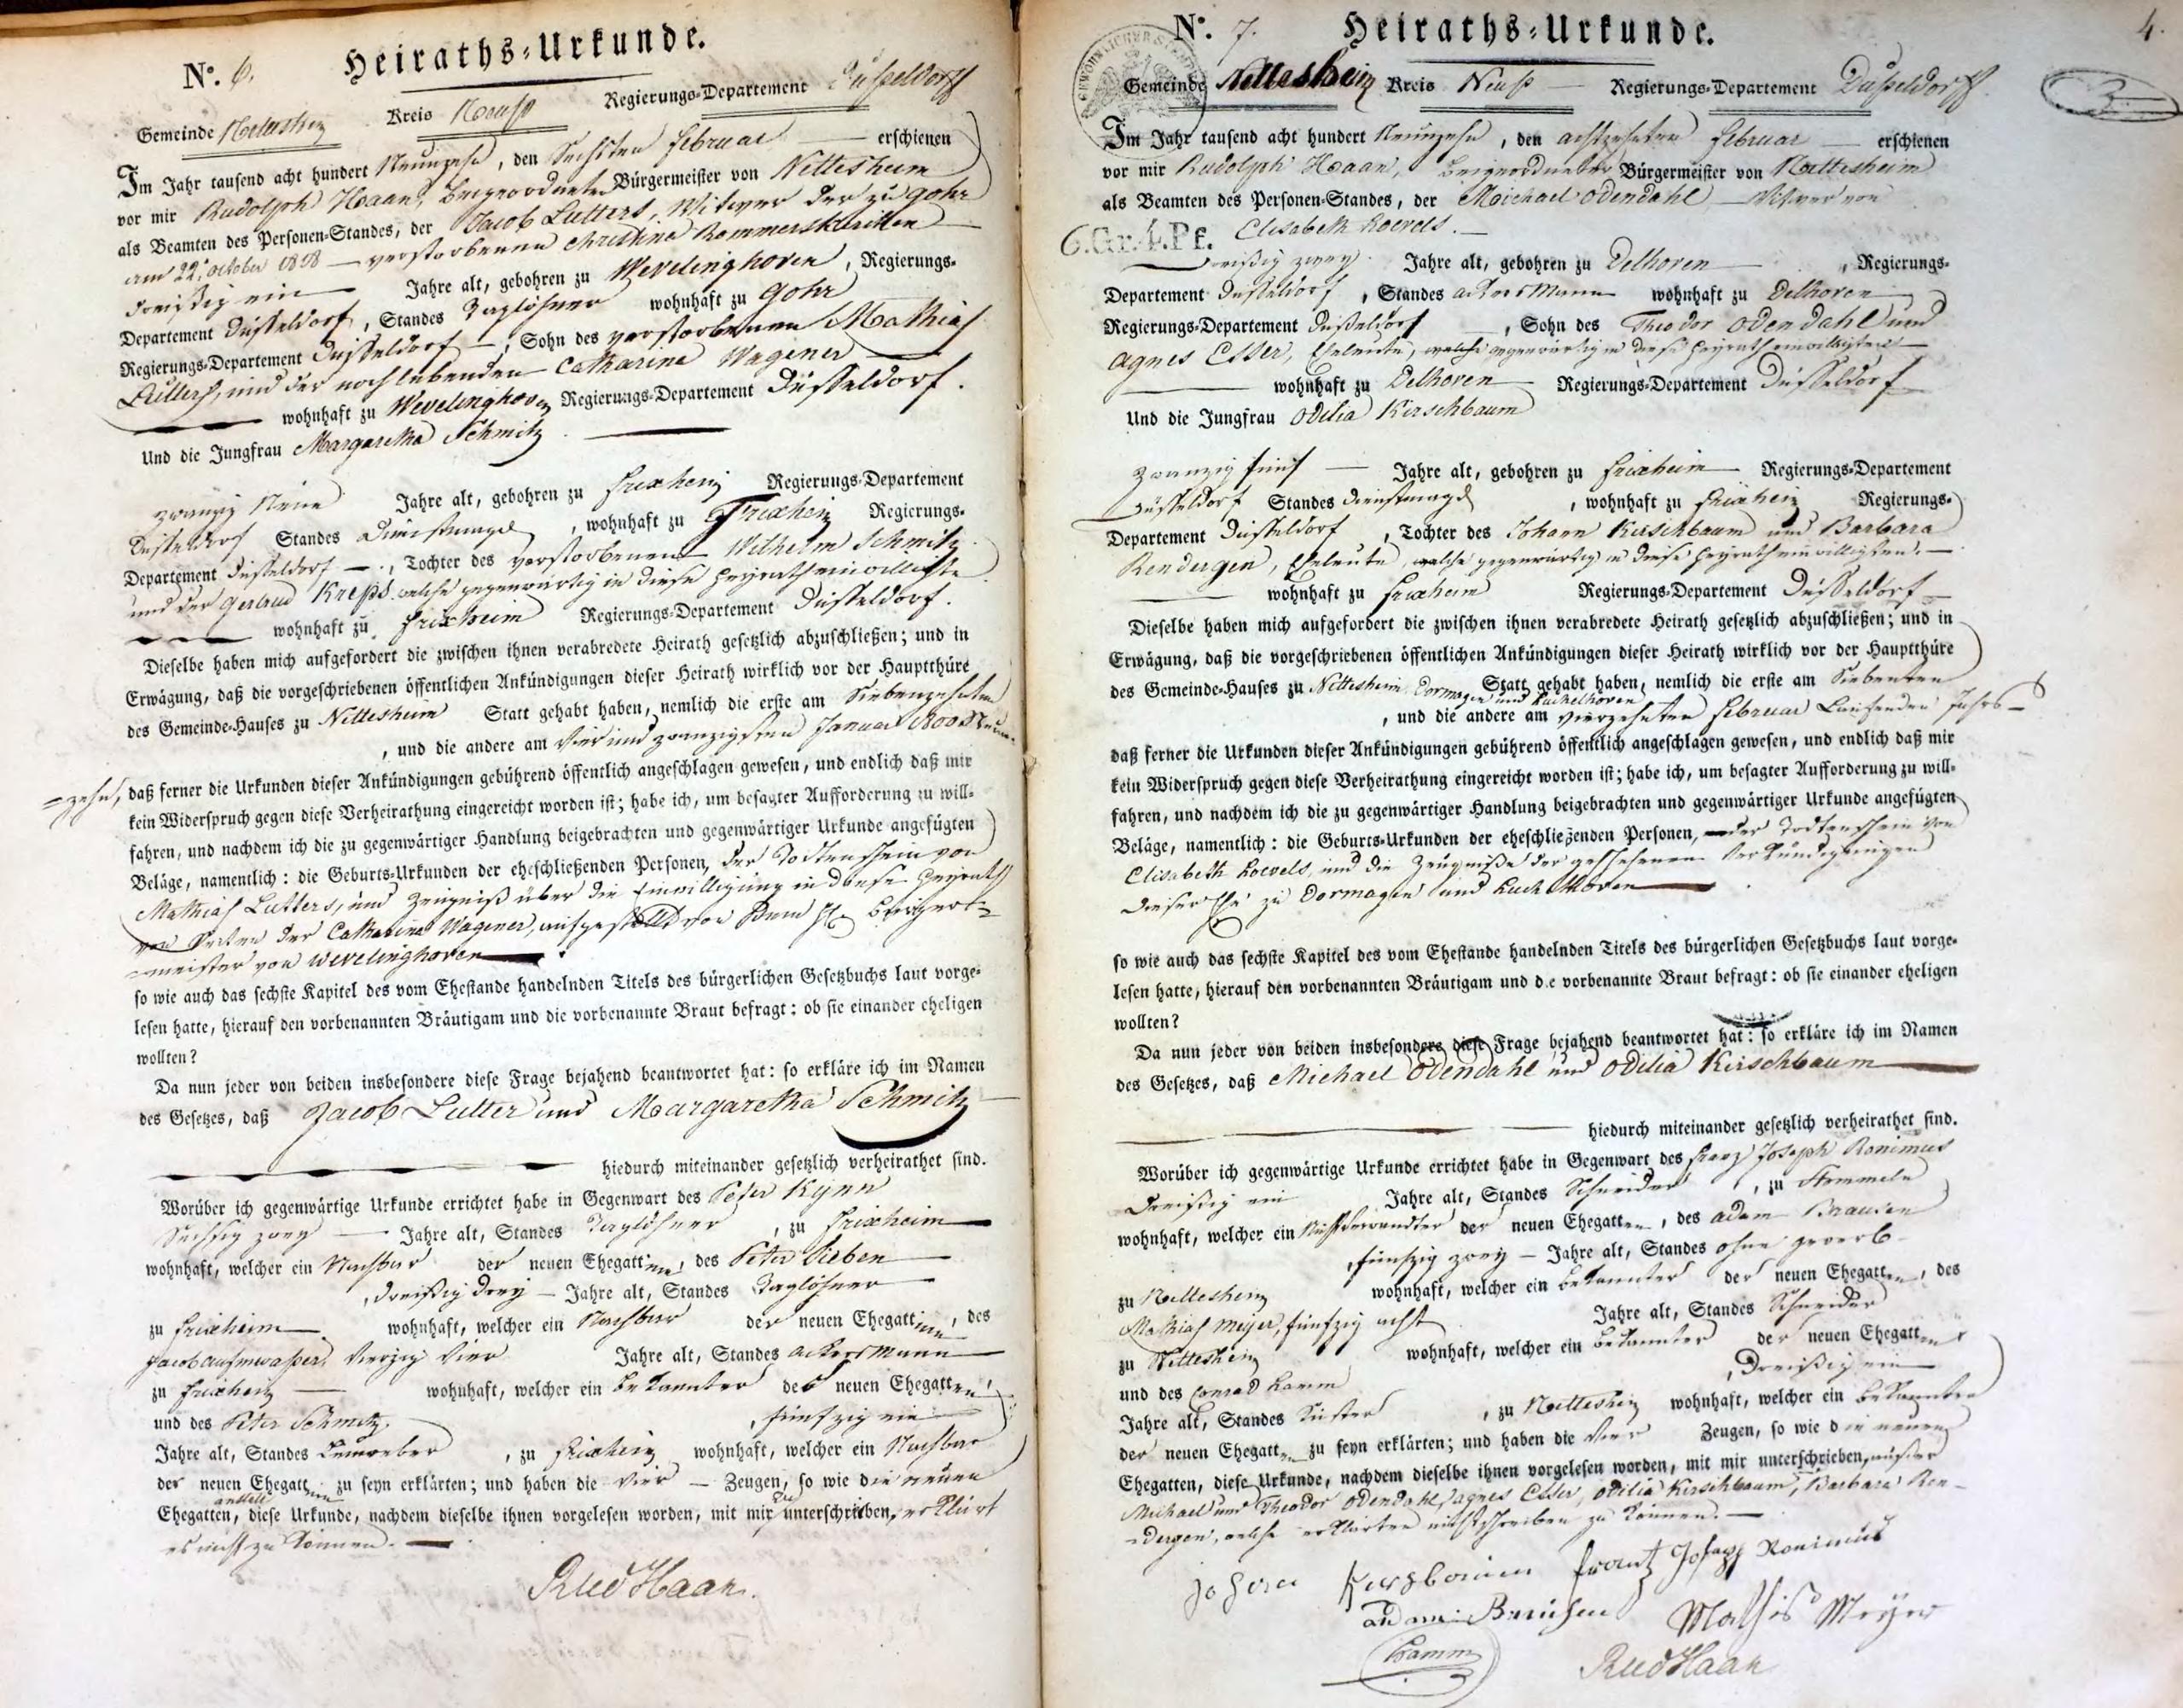 No. 6. Heiraths-Urkunde.
Gemeinde Nettesheim Kreis Neuss Regierungs-Departement Düsseldorff
Im Jahr tausend acht hundert Neunzehn, den Sechsten februar — erschienen
vor mir Rudolph Haan, beigeordneter Bürgermeister von Nettesheim
als Beamten des Personen-Standes, der Jacob Lutters, Witwer der zu Gohr
am 22. october 1818 — verstorbenen Christina Rommerskirchen
dreißig ein — Jahre alt, gebohren zu Wevelinghoven, Regierungs-
Departement Düsseldorf, Standes Taglöhner wohnhaft zu Gohr
Regierungs-Departement Düsseldorf —, Sohn des verstorbenen Mathias
Lutters, und der noch lebenden Catharina Wagener
— wohnhaft zu Wevelinghoven Regierungs-Departement Düsseldorf.
Und die Jungfrau Margaretha Schmitz
zwanzig Neun Jahre alt, gebohren zu frixheim Regierungs-Departement
Düsseldorf Standes Dienstmagd, wohnhaft zu Frixheim Regierungs-
Departement Düsseldorf —, Tochter des verstorbenen Wilhelm Schmitz
und der Gertrud Kreps welche gegenwärtig in diese Heyrath einwilligte
— wohnhaft zu frixheim Regierungs-Departement Düsseldorf.
Dieselbe haben mich aufgefordert die zwischen ihnen verabredete Heirath gesetzlich abzuschließen; und in
Erwägung, daß die vorgeschriebenen öffentlichen Ankündigungen dieser Heirath wirklich vor der Hauptthüre
des Gemeinde-Hauses zu Nettesheim Statt gehabt haben, nemlich die erste am Siebenzehnten
, und die andere am vier und zwanzigsten Januar Neun-
-zehn, daß ferner die Urkunden dieser Ankündigungen gebührend öffentlich angeschlagen gewesen, und endlich daß mir
kein Widerspruch gegen diese Verheirathung eingereicht worden ist; habe ich, um besagter Aufforderung zu will-
fahren, und nachdem ich die zu gegenwärtiger Handlung beigebrachten und gegenwärtiger Urkunde angefügten
Beläge, namentlich: die Geburts-Urkunden der eheschließenden Personen, der Todtenschein von
Mathias Lutters, und Zeugniß über die Einwilligung in diese Heyrath
von Seiten der Catharina Wagener, ausgestellt von dem H. Bürger-
-meister von Wevelinghoven
so wie auch das sechste Kapitel des vom Ehestande handelnden Titels des bürgerlichen Gesetzbuchs laut vorge-
lesen hatte, hierauf den vorbenannten Bräutigam und die vorbenannte Braut befragt: ob sie einander eheligen
wollten?
Da nun jeder von beiden insbesondere diese Frage bejahend beantwortet hat: so erkläre ich im Namen
des Gesetzes, daß Jacob Lutter und Margaretha Schmitz
hiedurch miteinander gesetzlich verheirathet sind.
Worüber ich gegenwärtige Urkunde errichtet habe in Gegenwart des Peter Kynn
Sechszig zwey — Jahre alt, Standes Taglöhner, zu frixheim
wohnhaft, welcher ein Nachbar der neuen Ehegattinn, des Peter Sieben
, dreißig drey — Jahre alt, Standes Taglöhner
zu frixheim wohnhaft, welcher ein Nachbar der neuen Ehegattinn, des
Jacob aufmwasser, vierzig vier Jahre alt, Standes ackersmann
zu frixheim — wohnhaft, welcher ein bekannter der neuen Ehegatten,
und des Peter Schmitz, fünfzig ein
Jahre alt, Standes Leinweber, zu frixheim wohnhaft, welcher ein Nachbar
der neuen Ehegattinn zu seyn erklärten; und haben die vier — Zeugen, so wie die neuen
Ehegatten, diese Urkunde, nachdem dieselbe ihnen vorgelesen worden, mit mir zu unterschrieben, erklärt
es nicht zu können.
Rud Haan.
No. 7. Heiraths-Urkunde. 4.
Gemeinde Nettesheim Kreis Neuss Regierungs-Departement Düsseldorff
Im Jahr tausend acht hundert Neunzehn, den achtzehnten februar — erschienen
vor mir Rudolph Haan, beigeordneter Bürgermeister von Nettesheim
als Beamten des Personen-Standes, der Michael Odendahl — Witwer von
6.Gr.4.Pf. Elisabeth Loevels.
dreißig zwey Jahre alt, gebohren zu Delhoven, Regierungs-
Departement Düsseldorf, Standes ackersmann wohnhaft zu Delhoven
Regierungs-Departement Düsseldorf —, Sohn des Theodor Odendahl und
Agnes Esser, Eheleute, welche gegenwärtig in diese Heyrath einwilligten
— wohnhaft zu Delhoven Regierungs-Departement Düsseldorf
Und die Jungfrau Odilia Kirschbaum
zwanzig fünf — Jahre alt, gebohren zu frixheim Regierungs-Departement
Düsseldorf Standes Dienstmagd, wohnhaft zu frixheim Regierungs-
Departement Düsseldorf, Tochter des Johann Kirschbaum und Barbara
Rendergen, Eheleute, welche gegenwärtig in diese Heyrath einwilligten.
— wohnhaft zu frixheim Regierungs-Departement Düsseldorf
Dieselbe haben mich aufgefordert die zwischen ihnen verabredete Heirath gesetzlich abzuschließen; und in
Erwägung, daß die vorgeschriebenen öffentlichen Ankündigungen dieser Heirath wirklich vor der Hauptthüre
des Gemeinde-Hauses zu Nettesheim Dormagen und Hackelhoven Statt gehabt haben, nemlich die erste am Siebenten
, und die andere am vierzehnten februar Laufenden Jahrs
daß ferner die Urkunden dieser Ankündigungen gebührend öffentlich angeschlagen gewesen, und endlich daß mir
kein Widerspruch gegen diese Verheirathung eingereicht worden ist; habe ich, um besagter Aufforderung zu will-
fahren, und nachdem ich die zu gegenwärtiger Handlung beigebrachten und gegenwärtiger Urkunde angefügten
Beläge, namentlich: die Geburts-Urkunden der eheschließenden Personen, der Todtenschein von
Elisabeth Loevels, und die Zeugniße der geschehenen Verkündigungen
dieser Ehe zu Dormagen und
so wie auch das sechste Kapitel des vom Ehestande handelnden Titels des bürgerlichen Gesetzbuchs laut vorge-
lesen hatte, hierauf den vorbenannten Bräutigam und die vorbenannte Braut befragt: ob sie einander eheligen
wollten?
Da nun jeder von beiden insbesondere diese Frage bejahend beantwortet hat: so erkläre ich im Namen
des Gesetzes, daß Michael Odendahl und Odilia Kirschbaum
hiedurch miteinander gesetzlich verheirathet sind.
Worüber ich gegenwärtige Urkunde errichtet habe in Gegenwart des franz Joseph Ronimus
dreißig ein Jahre alt, Standes Schneider, zu Stommeln
wohnhaft, welcher ein Nichtverwandter der neuen Ehegatten, des adam Brausen
, fünfzig zwey — Jahre alt, Standes ohne gewerb
zu Nettesheim wohnhaft, welcher ein bekannter der neuen Ehegatten, des
Mathias Meyer, fünfzig acht Jahre alt, Standes Schneider
zu Nettesheim wohnhaft, welcher ein bekannter der neuen Ehegatten
und des Conrad Hamm, dreißig ein
Jahre alt, Standes Küster, zu Nettesheim wohnhaft, welcher ein bekannter
der neuen Ehegatten zu seyn erklärten; und haben die vier Zeugen, so wie die neuen
Ehegatten, diese Urkunde, nachdem dieselbe ihnen vorgelesen worden, mit mir unterschrieben, außer
Michael und Theodor Odendahl, Agnes Esser, Odilia Kirschbaum, Barbara Ren-
-dergen, welche erklärten nicht schreiben zu können.
Johann Kirschbaum frantz Joseph Ronimus
adam Brausen Mathis Meyer
Hamm Rud Haan